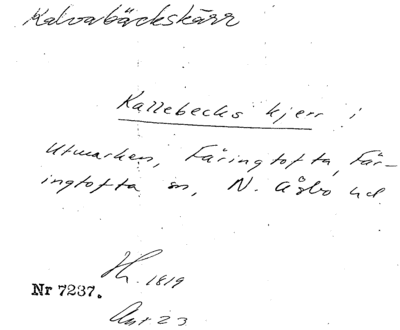 Kalvabäckskärr
Kallebecks kjerr i
Utmarken, Färingtofta, Fär-
ingtofta sn, N. Åsbo hd.
1819
Nr 7237.
23